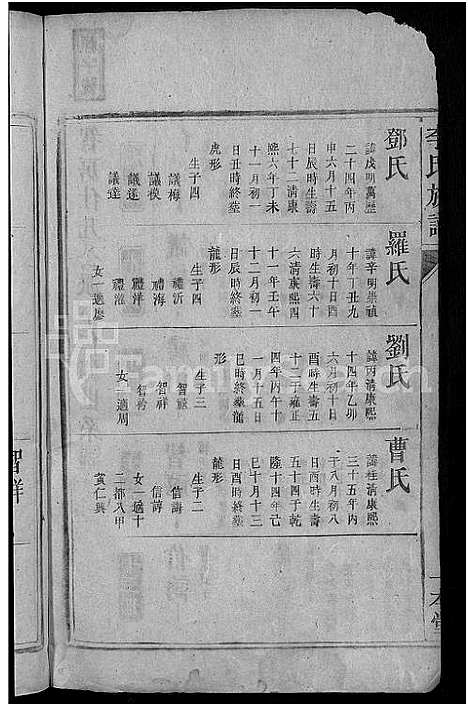 李氏族譜
鄧氏
諱戊明萬歷
二十四年丙
申六月十五
日辰時生壽
七十二清康
熙六年丁未
十一月初一
日丑時終墓
虎形
生子四
議梅
議模
議運
議達
羅氏
諱辛明崇禎
十年丁丑九
月初十日酉
時生壽六十
六清康熙四
十一年壬午
十二月初一
日辰時終墓
龍形
生子四
禮沂
禮海
禮洋
禮淮
女一適廖
劉氏
諱丙清康熙
十四年乙卯
六月初十日
酉時生壽五
十三于雍正
四年丙午十
一月十五日
巳時終墓龍
形
生子三
智祥
女一適周
曹氏
諱桂清康熙
三十五年丙
子八月初八
日酉時生壽
五十四于乾
隆十四年己
巳十月十三
日酉時終墓
龍形
生子二
信壽
信詩
女一適十
二都八甲
黃仁興
智祥
一本堂